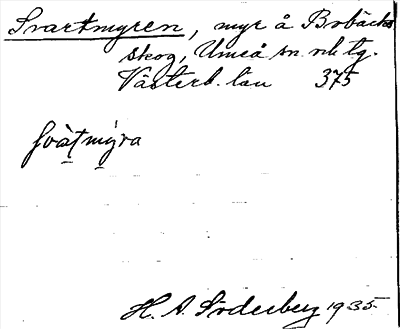 Svartmyren, myr å Bobäcks
skog, Umeå sn. nb. tg.
Västerb. län 375
svàt̩mýra
H. A. Söderberg 1935